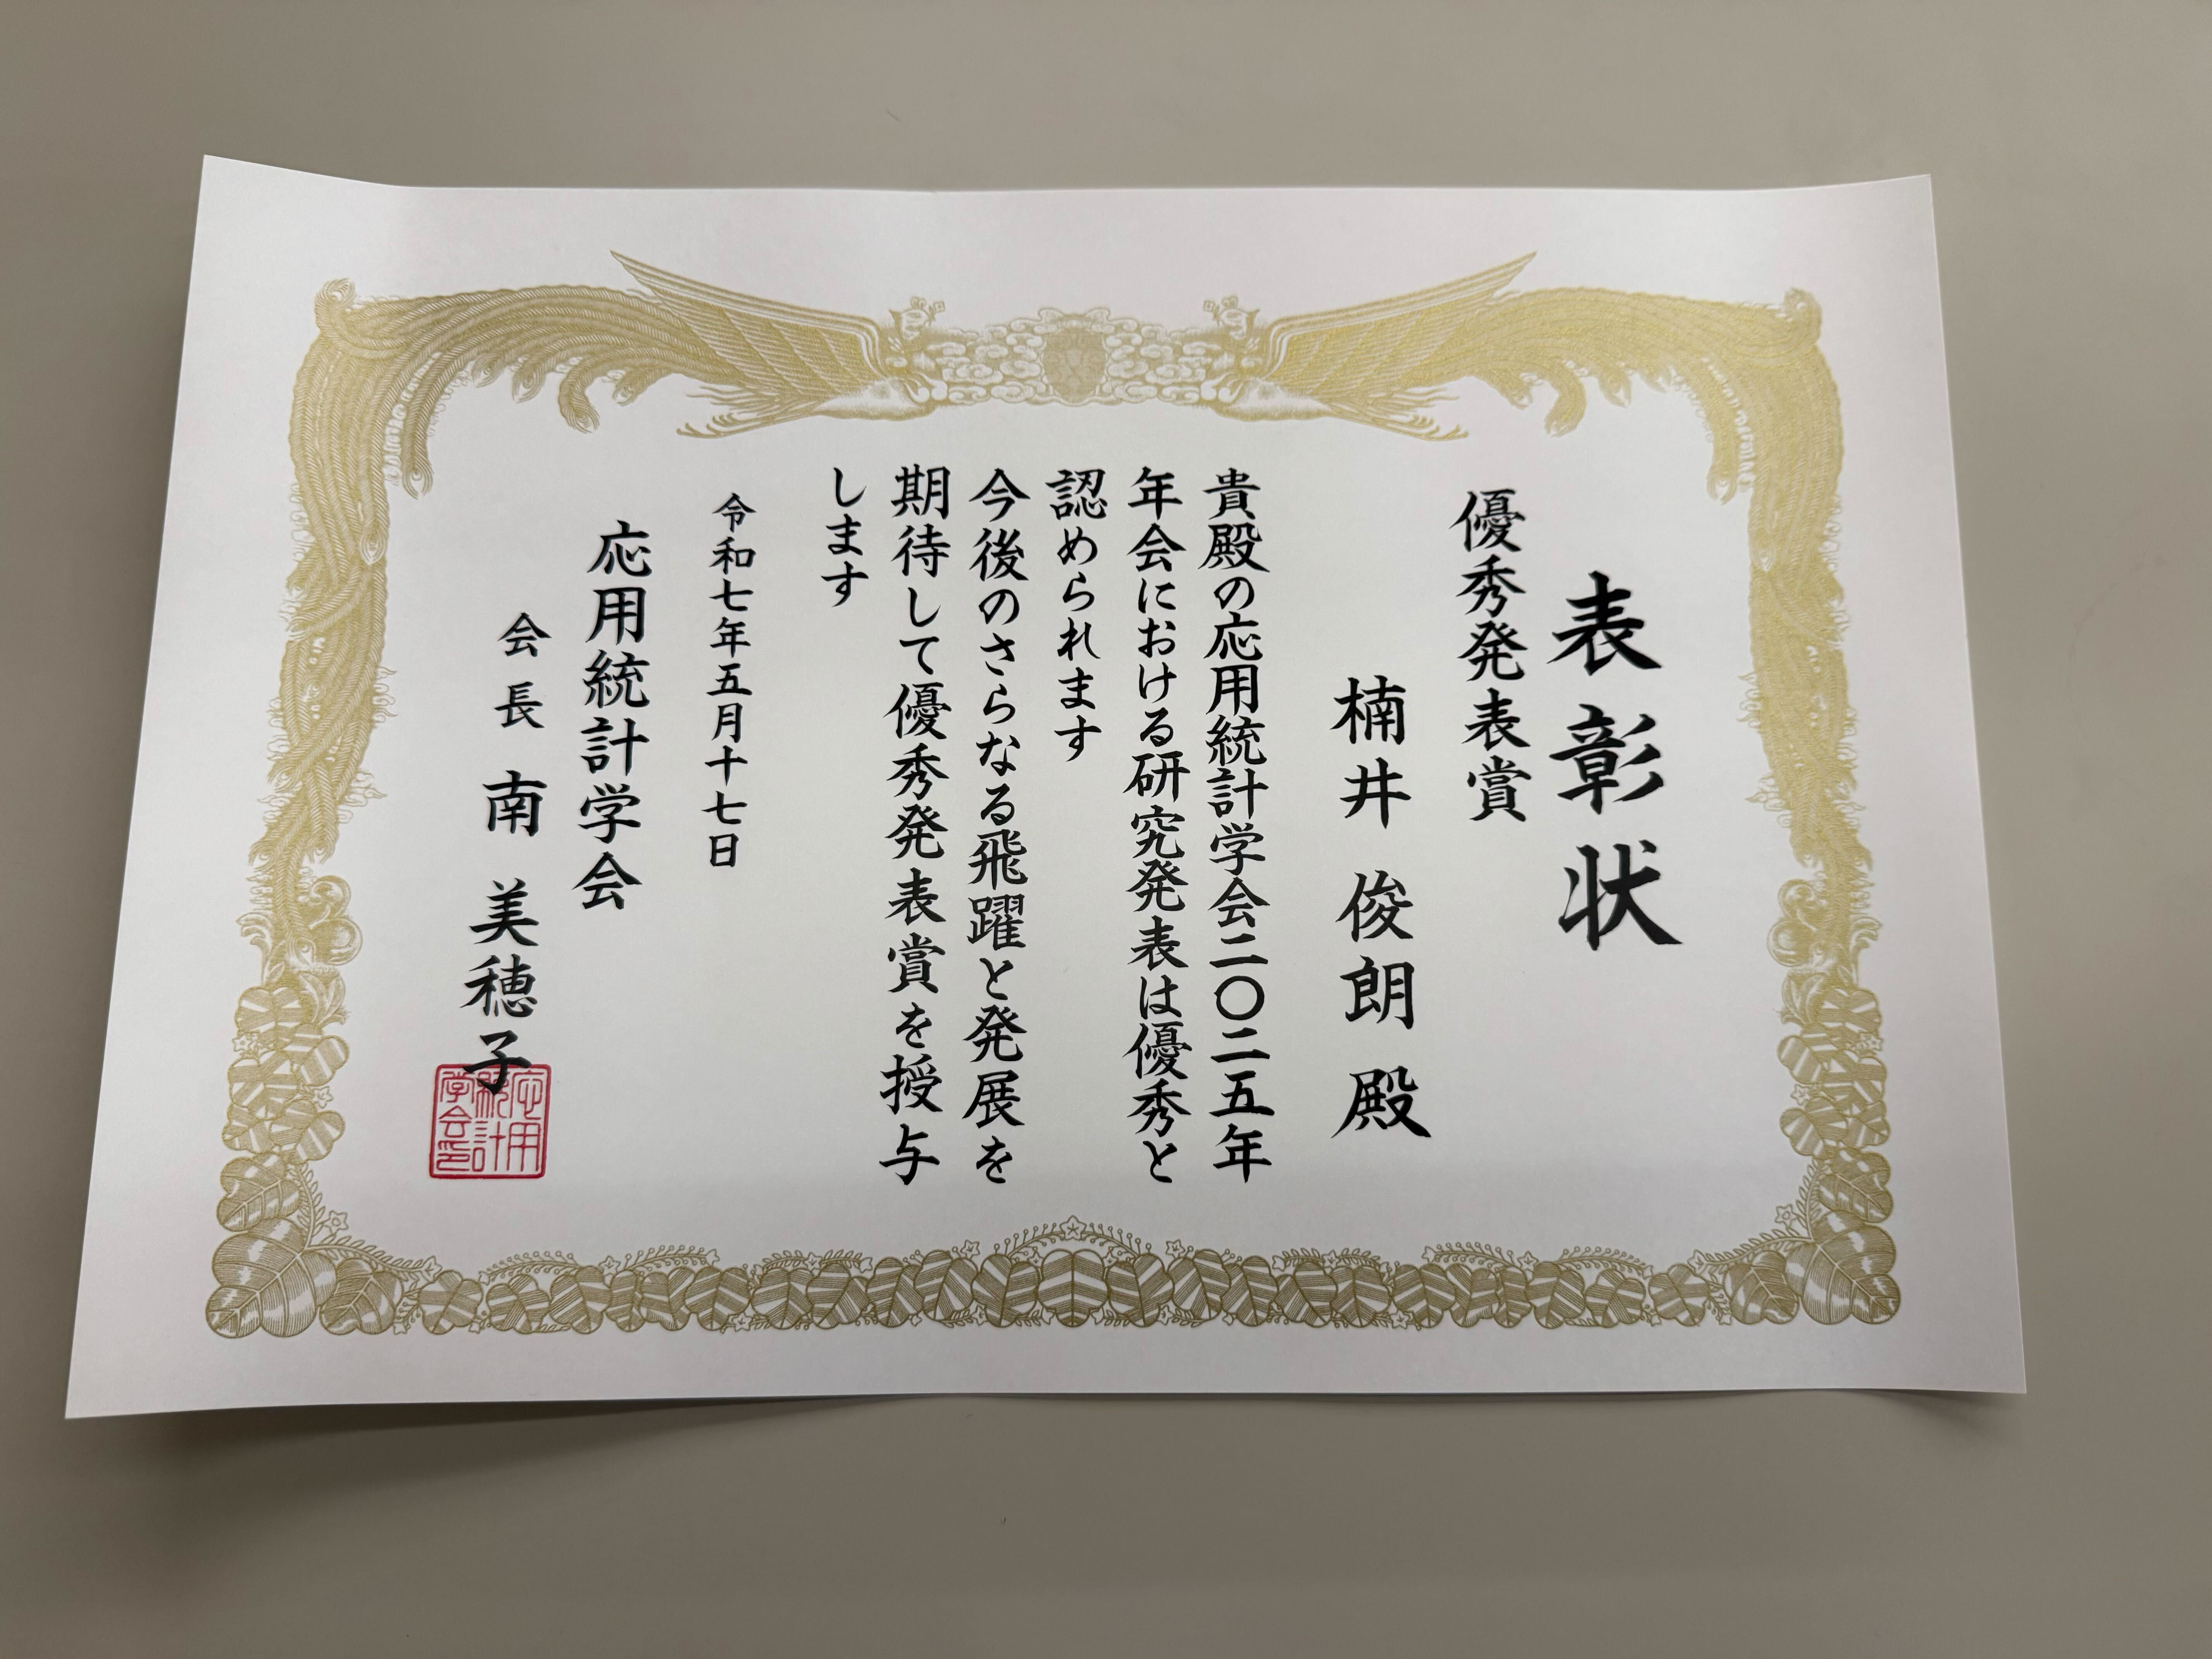 表彰状
優秀発表賞
楠井 俊朗 殿
貴殿の応用統計学会二〇二五年
年会における研究発表は優秀と
認められます
今後のさらなる飛躍と発展を
期待して優秀発表賞を授与
します
令和七年五月十七日
応用統計学会
会長 南 美穂子
応用
統計
学会印